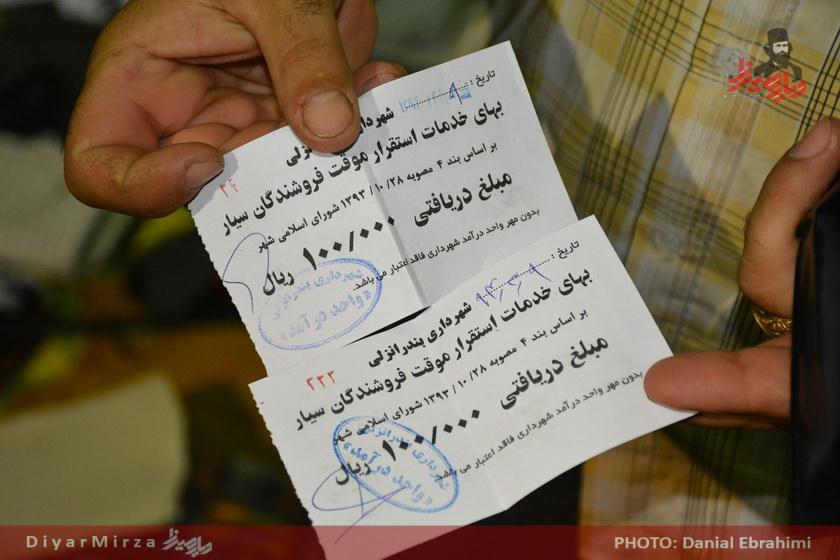 تاریخ :
شهرداری بندرانزلی
بهای خدمات استقرار موقت فروشندگان سیار
بر اساس بند ۴ مصوبه ۱۳۹۳/۱۰/۲۸ شورای اسلامی شهر
مبلغ دریافتی ۱۰۰/۰۰۰ ریال
بدون مهر واحد درآمد شهرداری فاقد اعتبار می باشد.
۳۶
شهرداری بندرانزلی
«واحد درآمد»
تاریخ :
شهرداری بندرانزلی
بهای خدمات استقرار موقت فروشندگان سیار
بر اساس بند ۴ مصوبه ۱۳۹۳/۱۰/۲۸ شورای اسلامی شهر
مبلغ دریافتی ۱۰۰/۰۰۰ ریال
بدون مهر واحد درآمد شهرداری فاقد اعتبار می باشد.
۲۲۳
شهرداری بندرانزلی
«واحد درآمد»
DiyarMirza
PHOTO: Danial Ebrahimi